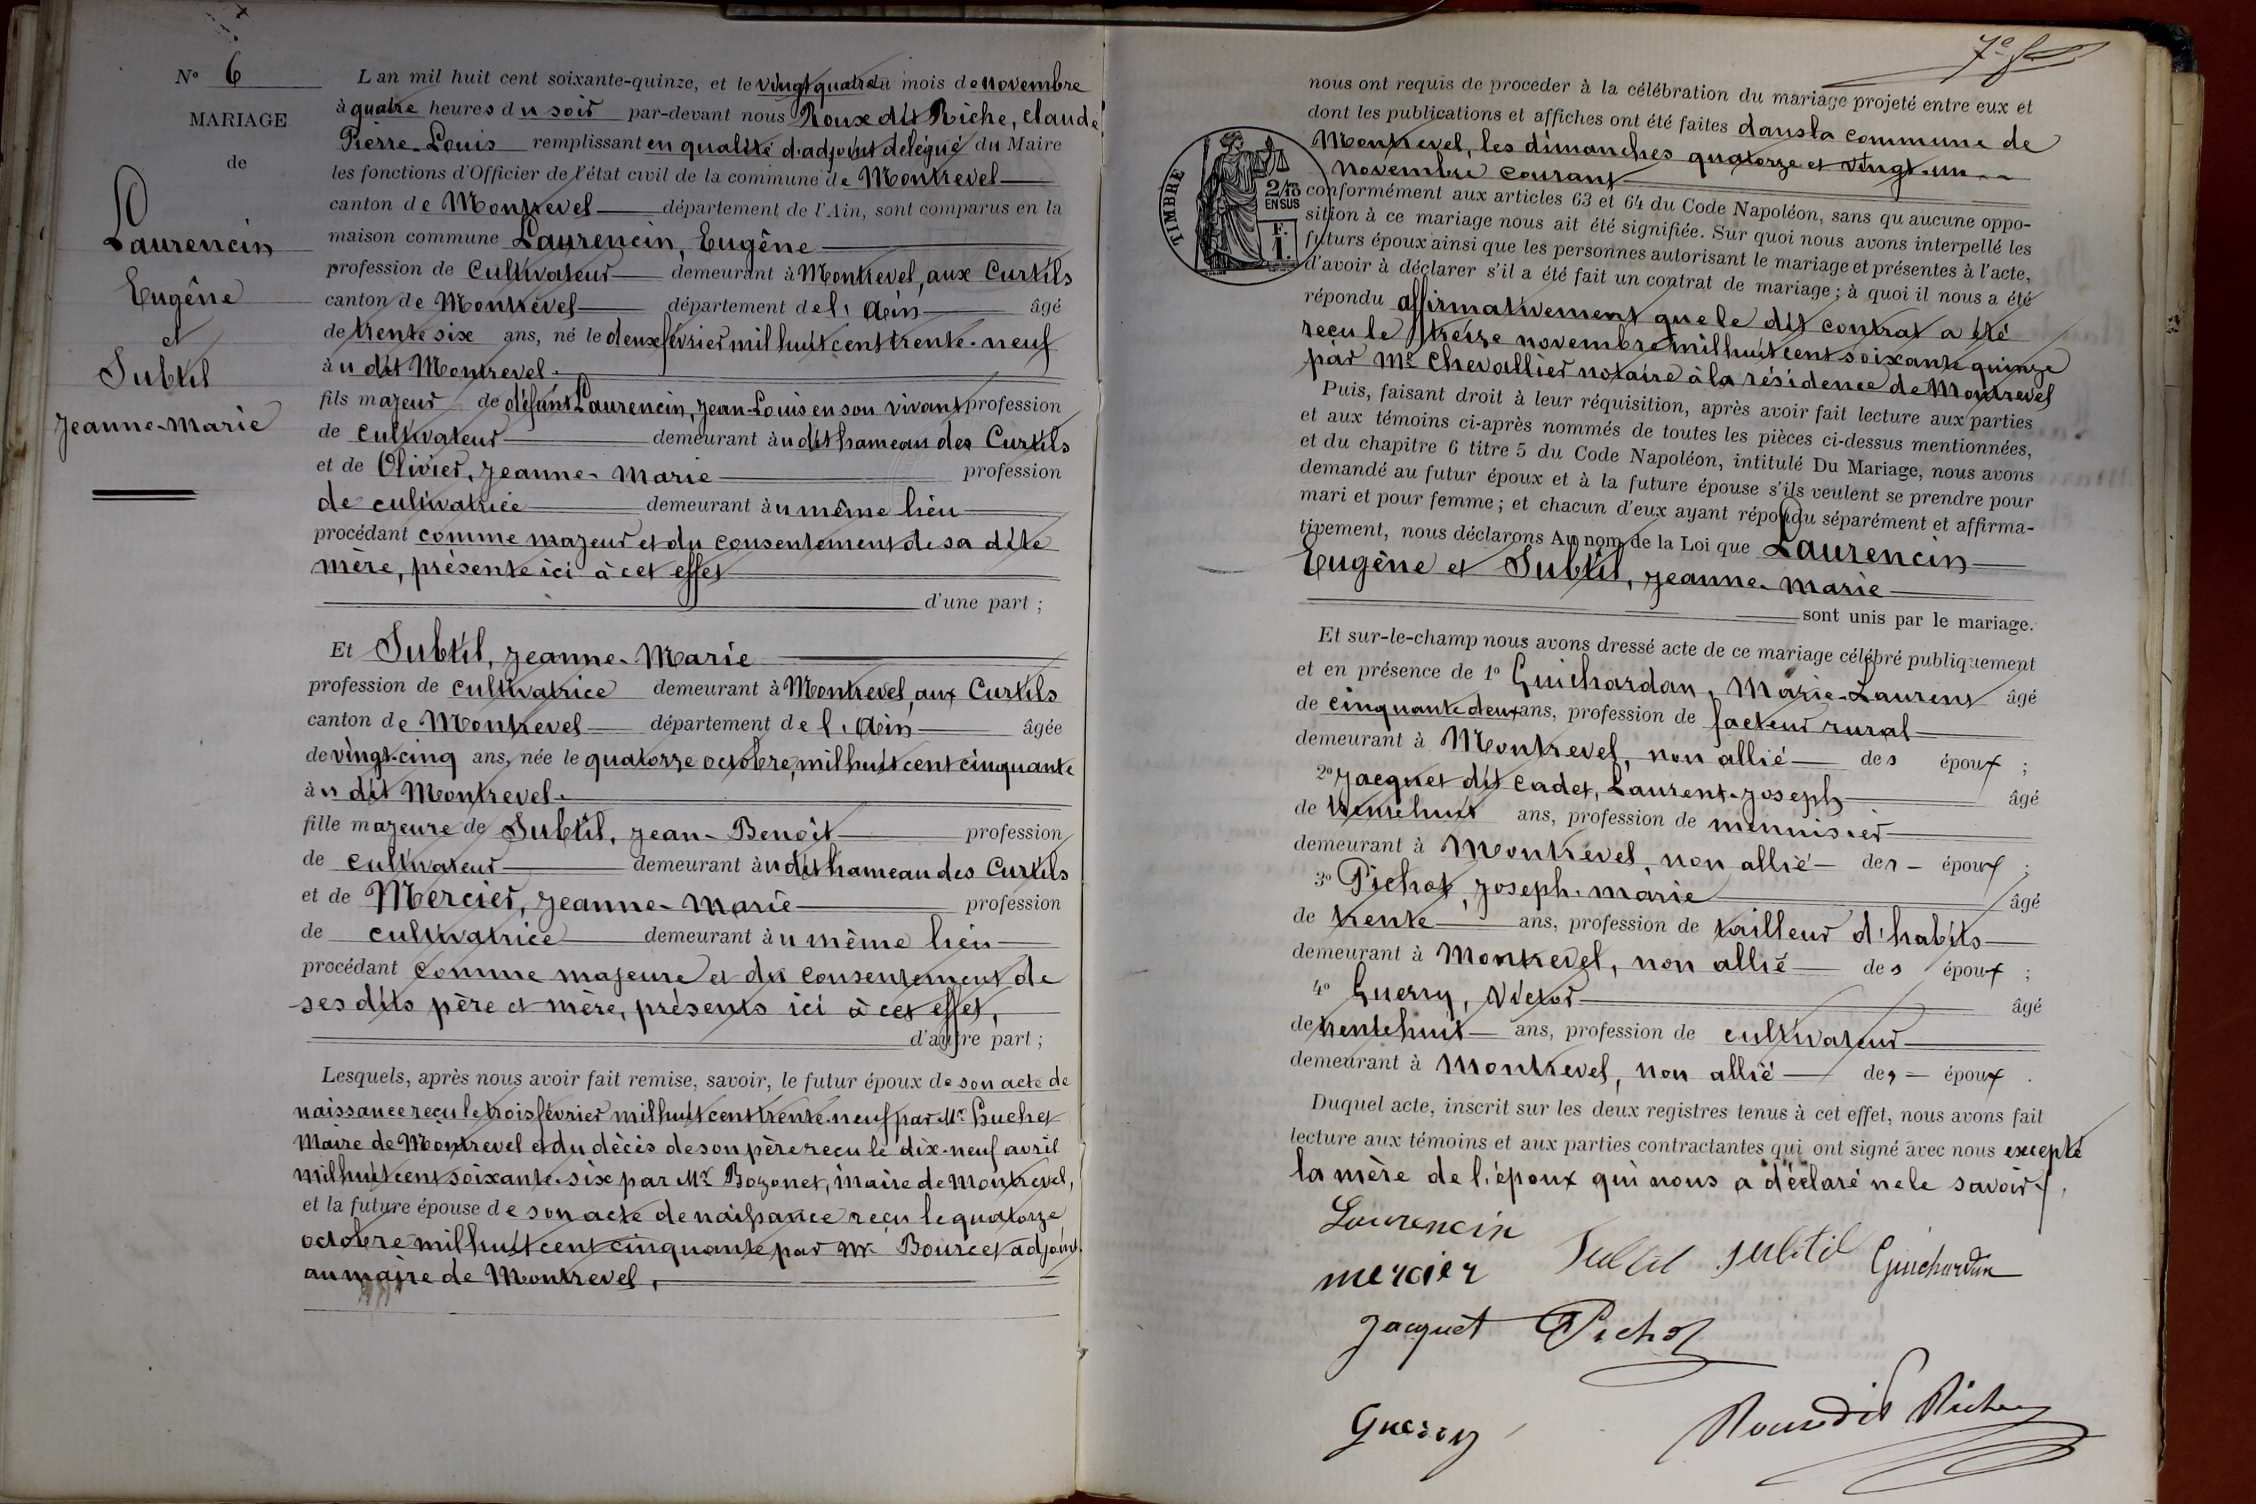 N° 6
MARIAGE
de
Laurencin
Eugêne
et
Subtil
Jeanne-Marie
L'an mil huit cent soixante-quinze, et le vingt quatre du mois de novembre
à quatre heures du soir par-devant nous Roux dit Riche, Claude
Pierre-Louis remplissant en qualité d'adjoint délégué du Maire
les fonctions d'Officier de l'état civil de la commune de Montrevel
canton de Montrevel département de l'Ain, sont comparus en la
maison commune Laurencin, Eugêne
profession de Cultivateur demeurant à Montrevel, aux Curtils
canton de Montrevel département de l'Ain âgé
de trente six ans, né le deux février mil huit cent trente-neuf
à u dit Montrevel.
fils majeur de défunt Laurencin, Jean-Louis en son vivant profession
de cultivateur demeurant à u dit hameau des Curtils
et de Olivier, Jeanne-Marie profession
de cultivatrice demeurant à u même lieu
procédant comme majeur et du consentement de sa dite
mère, présente ici à cet effet
d'une part ;
Et Subtil, Jeanne-Marie
profession de cultivatrice demeurant à Montrevel, aux Curtils
canton de Montrevel département de l'Ain âgée
de vingt-cinq ans, née le quatorze octobre, mil huit cent cinquante
à u dit Montrevel.
fille majeure de Subtil, Jean-Benoît profession
de cultivateur demeurant à u dit hameau des Curtils
et de Mercier, Jeanne-Marie profession
de cultivatrice demeurant à u même lieu
procédant comme majeure et du consentement de
ses dits père et mère, présents ici à cet effet,
d'autre part ;
Lesquels, après nous avoir fait remise, savoir, le futur époux de son acte de
naissance reçu le trois février mil huit cent trente-neuf par Mr Buchet
Maire de Montrevel et du décès de son père reçu le dix-neuf avril
mil huit cent soixante-six par Mr Bozonet, maire de Montrevel,
et la future épouse de son acte de naissance reçu le quatorze
octobre mil huit cent cinquante par Mr Bourcet adjoint
au maire de Montrevel,
7e f
TIMBRE
2/10
EN SUS
F.
1.
nous ont requis de procéder à la célébration du mariage projeté entre eux et
dont les publications et affiches ont été faites dans la commune de
Montrevel, les dimanches quatorze et vingt-un
novembre courant
conformément aux articles 63 et 64 du Code Napoléon, sans qu'aucune oppo-
sition à ce mariage nous ait été signifiée. Sur quoi nous avons interpellé les
futurs époux ainsi que les personnes autorisant le mariage et présentes à l'acte,
d'avoir à déclarer s'il a été fait un contrat de mariage ; à quoi il nous a été
répondu affirmativement que le dit contrat a été
reçu le treize novembre mil huit cent soixante quinze
par Me Chevallier notaire à la résidence de Montrevel
Puis, faisant droit à leur réquisition, après avoir fait lecture aux parties
et aux témoins ci-après nommés de toutes les pièces ci-dessus mentionnées,
et du chapitre 6 titre 5 du Code Napoléon, intitulé Du Mariage, nous avons
demandé au futur époux et à la future épouse s'ils veulent se prendre pour
mari et pour femme ; et chacun d'eux ayant répondu séparément et affirma-
tivement, nous déclarons Au nom de la Loi que Laurencin
Eugène et Subtil, Jeanne-Marie
sont unis par le mariage.
Et sur-le-champ nous avons dressé acte de ce mariage célébré publiquement
et en présence de 1° Guichardan, Marie-Laurent âgé
de cinquante deux ans, profession de facteur rural
demeurant à Montrevel, non allié des époux ;
2° Jacquet dit Cadet, Laurent-Joseph âgé
de trente huit ans, profession de menuisier
demeurant à Montrevel, non allié des époux ;
3° Pichot, Joseph-Marie âgé
de trente ans, profession de tailleur d'habits
demeurant à Montrevel, non allié des époux ;
4° Guerry, Victor âgé
de trente huit ans, profession de cultivateur
demeurant à Montrevel, non allié des époux .
Duquel acte, inscrit sur les deux registres tenus à cet effet, nous avons fait
lecture aux témoins et aux parties contractantes qui ont signé avec nous excepté
la mère de l'époux qui nous a déclaré ne le savoir.
Laurencin
mercier Subtil subtil Guichardan
Jacquet Pichot
Guerry Roux dit Riche